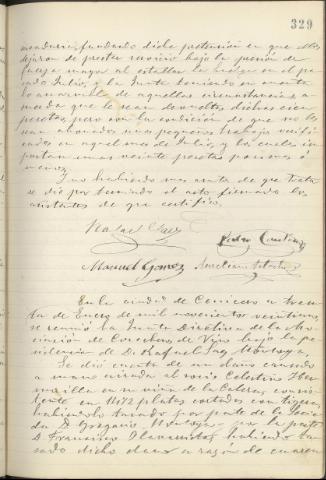 329
fundando dicha pretension en que ellos
dejaron de prestar servicio bajo la presion de
fuerza mayor al estallar la huelga en el pa
sado Julio, y la Junta teniendo en cuenta
lo anormal de aquellas circunstancias, a
cuerda que le sean devueltas dichas cien
pesetas, pero con la condicion de que no les
sean abonados unos pequeños trabajos verifi
cados en aquel mes de Julio, y los cuales im
portan unas veinte pesetas proximas ó
menos.
Y no habiendo mas asunto de que tratar
se dió por terminado el acto firmando los
asistentes de que certifico.
Rafael
Pedro
Manuel Gomez Aureliano
En la ciudad de Cenicero a trein
ta de Enero de mil novecientos veintiuno,
se reunió la Junta Directiva de la Aso
ciación de Cosecheros de Vino bajo la pre
sidencia de D. Rafael Montoya.
Se dió cuenta de un daño causado
en mano airada al socio Celestino
en su viña de la consis
tente en 1472 plantas cortadas con tijera,
habiendolo tasado por parte de la Socie
dad D. Gregorio Montoya y por la parte
D. Francisco habiendo ta
sado dicho daño a razón de cuaren